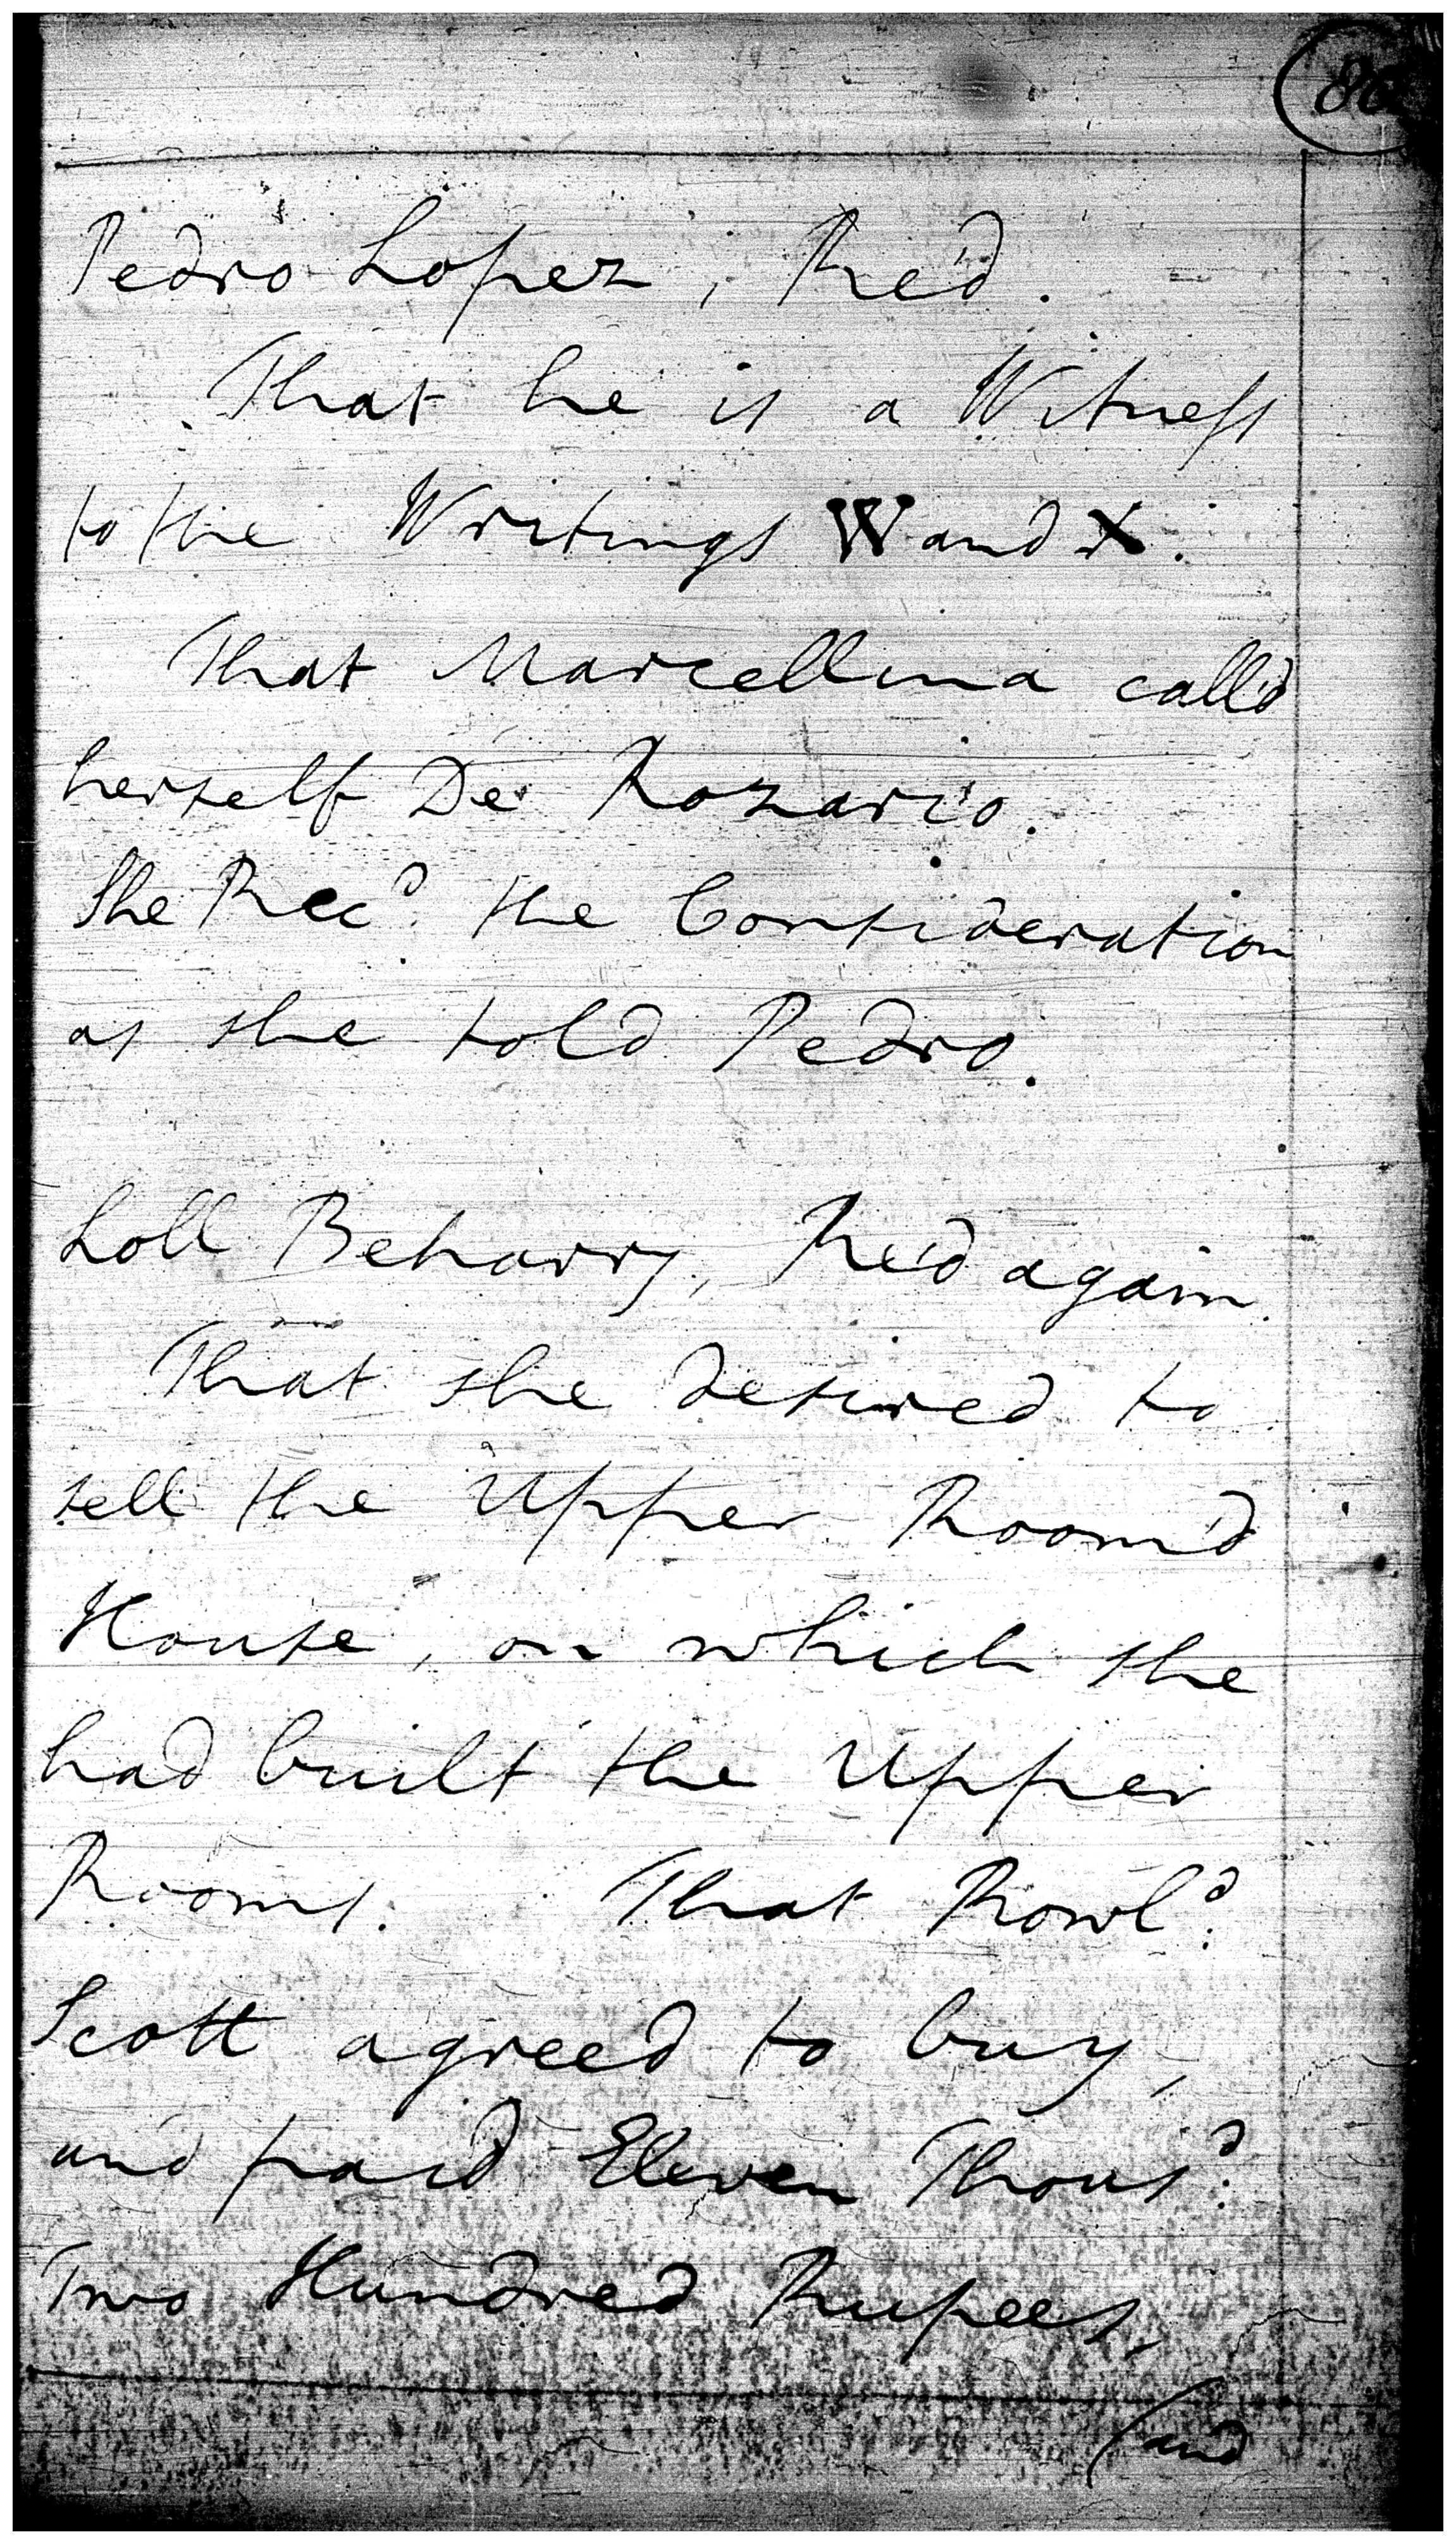 Pedro Lopez, Re'd.
That he is a Witness
to the Writings W and X.
That Marcellina call'd
herself De Rozario.
She Recd. the Consideration
as she told Pedro.
Loll Beharry, Re'd again.
That she desired to
sell the Upper Room'd
House, on which she
had built the Upper
Rooms. That Rowld.
Scott agreed to buy,
and paid Eleven Thousd.
Two Hundred Rupees,
(and